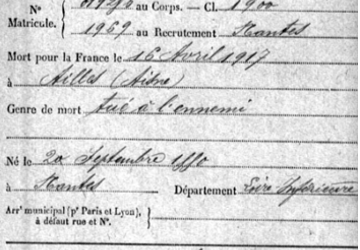 N° au Corps. — Cl. 1900
Matricule. 1969 au Recrutement Nantes
Mort pour la France le 16 Avril 1917
à Ailles (Aisne)
Genre de mort tué à l'ennemi
Né le 20 Septembre 1880
à Nantes Département Loire Inférieure
Arrt municipal (pr Paris et Lyon),
à défaut rue et N°.